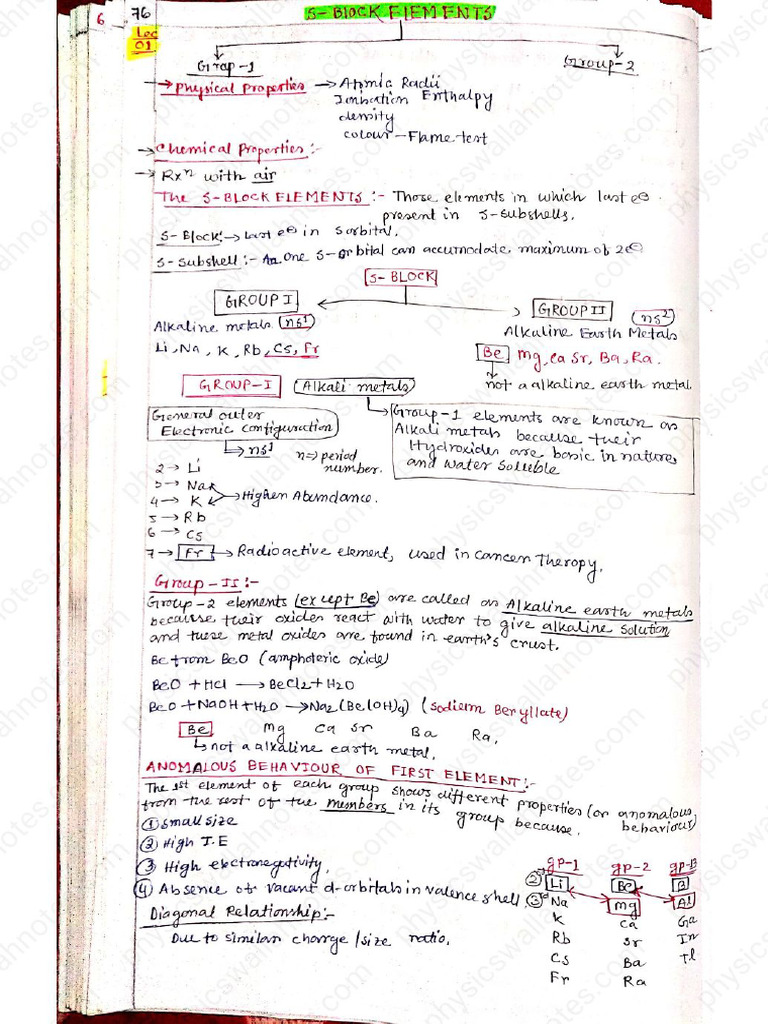 6
76
S-BLOCK ELEMENTS
Lec
01
Group-1
Group-2
→ Physical Properties → Atomic Radii
Ionisation Enthalpy
density
colour - Flame test
→ Chemical Properties :-
→ Rxⁿ with air
The S-BLOCK ELEMENTS :- Those elements in which last e⊖
present in S-subshells.
S-Block :→ Last e⊖ in S orbital.
S-Subshell :- An One S-Orbital can accumodate maximum of 2e⊖
S-BLOCK
GROUP I
GROUP II (ns²)
Alkaline metals (ns¹)
Alkaline Earth Metals
Li, Na, K, Rb, Cs, Fr
Be Mg, Ca Sr, Ba, Ra.
not a alkaline earth metal.
GROUP-I (Alkali metals)
General outer
Electronic configuration
→ ns¹
n => period
number.
Group-1 elements are known as
Alkali metals because their
Hydroxides are basic in nature
and water soluble
2 → Li
3 → Na
4 → K → Higher Abundance.
5 → Rb
6 → Cs
7 → Fr → Radioactive element, used in cancer Theropy.
Group-II :-
Group-2 elements (except Be) are called as Alkaline earth metals
because their oxides react with water to give alkaline solution
and these metal oxides are found in earth's crust.
Be from BeO (amphoteric oxide)
BeO + HCl → BeCl2 + H2O
BeO + NaOH + H2O → Na2(Be(OH)4) (Sodium Beryllate)
Be Mg Ca Sr Ba Ra.
not a alkaline earth metal.
ANOMALOUS BEHAVIOUR OF FIRST ELEMENT :-
The 1st element of each group shows different properties (or anomalous
from the rest of the members in its group because. behaviour)
① Small size
② High I.E
③ High electronegativity.
④ Absence of vacant d-orbitals in valence shell.
Diagonal Relationship :-
Due to similar charge/size ratio.
gp-1 gp-2 gp-13
② Li Be B
③ Na Mg Al
K Ca Ga
Rb Sr In
Cs Ba Tl
Fr Ra
physicswallahnotes.com